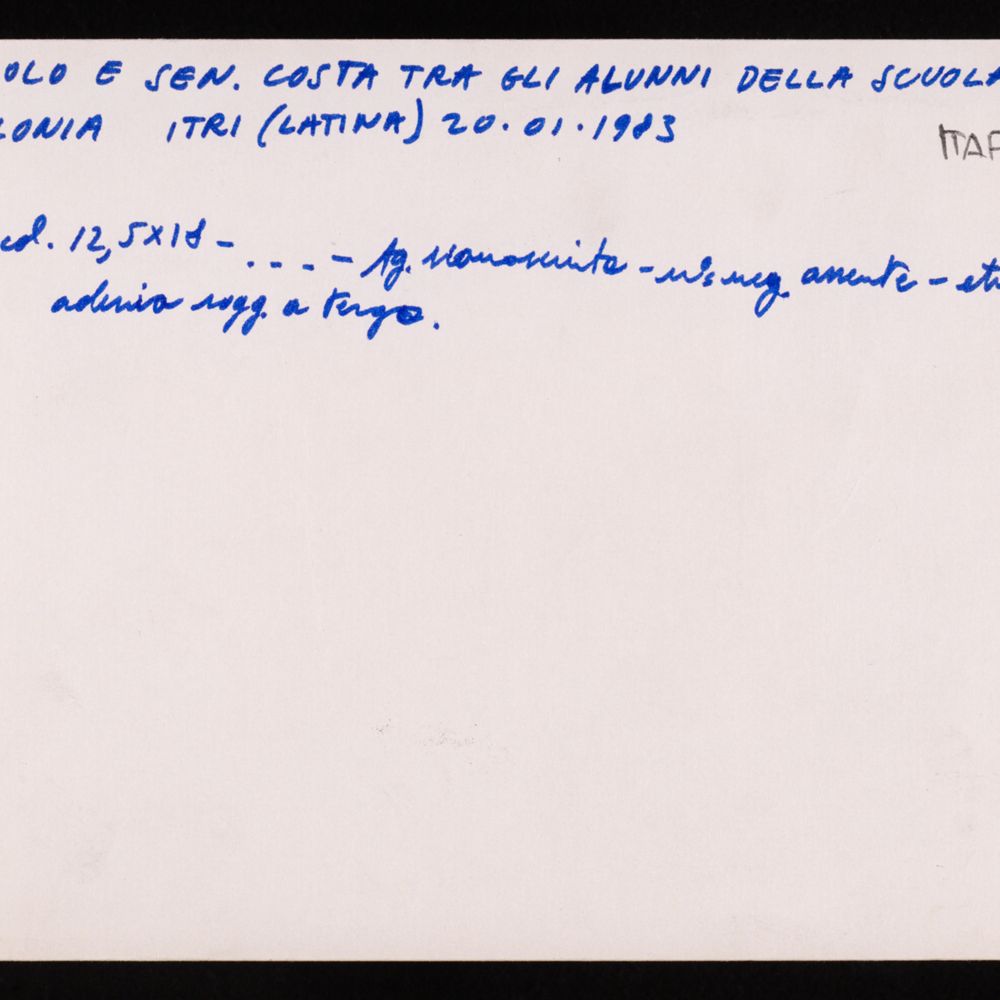 OLO E SEN. COSTA TRA GLI ALUNNI DELLA SCUOLA
LONIA ITRI (LATINA) 20.01.1983
ITAP
col. 12,5x18 - . . . . - Ag. sconosciuta - n°s neg. assente -
adesiva sogg. a tergo.